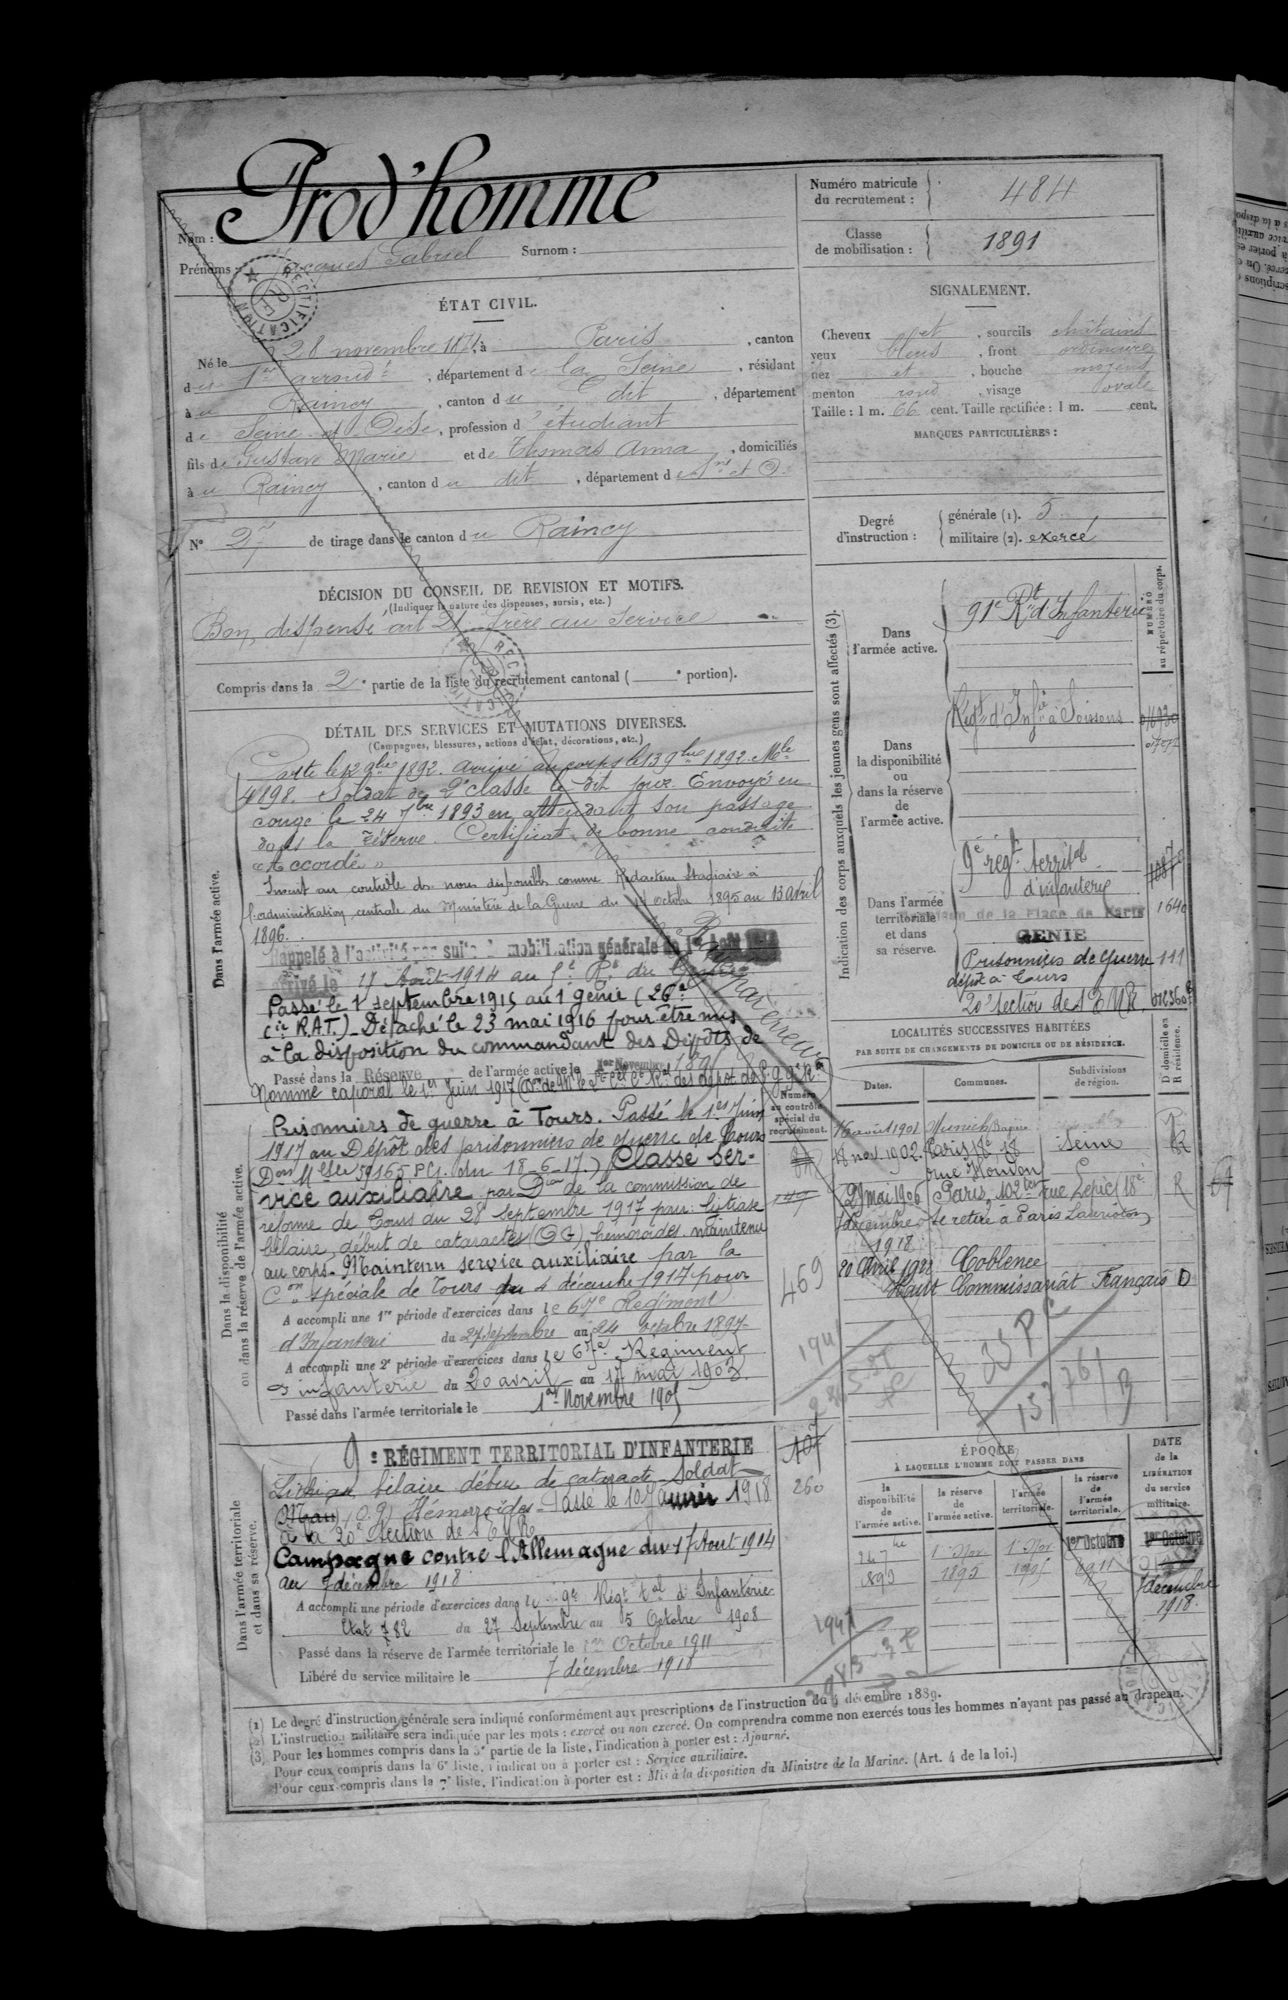 Nom : Prod'homme
Prénoms : Jacques Gabriel Surnom :
Numéro matricule du recrutement : 484
Classe de mobilisation : 1891
ÉTAT CIVIL.
Né le 28 novembre 1871, à Paris, canton
du 1er arrondt, département de la Seine, résidant
à u Raincy, canton du dit, département
de Seine et Oise, profession d'étudiant
fils de Gustave Marie et de Thomas Anna, domiciliés
à u Raincy, canton du dit, département de S. et O.
N° 27 de tirage dans le canton du Raincy
SIGNALEMENT.
Cheveux et, sourcils châtains
yeux bleus, front ordinaire
nez et, bouche moyens
menton rond, visage ovale
Taille : 1 m. 66 cent. Taille rectifiée : 1 m. cent.
MARQUES PARTICULIÈRES :
Degré d'instruction :
générale (1). 5
militaire (2). exercé
DÉCISION DU CONSEIL DE REVISION ET MOTIFS.
(Indiquer la nature des dispenses, sursis, etc.)
Bon, dispensé art 21 frère au service
Compris dans la 2e partie de la liste du recrutement cantonal ( e portion).
DÉTAIL DES SERVICES ET MUTATIONS DIVERSES.
(Campagnes, blessures, actions d'éclat, décorations, etc.)
Dans l'armée active.
Parti le 12 9bre 1892. Arrivé au corps le 13 9bre 1892. Mle
4898. Soldat de 2e classe le dit jour. Envoyé en
congé le 24 7bre 1893 en attendant son passage
dans la réserve. Certificat de bonne conduite
"Accordé"
Inscrit au contrôle des non disponibles comme Rédacteur stagiaire à
l'administration centrale du Ministère de la Guerre du octobre 1895 au 13 avril
1896.
Rappelé à l'activité par suite de mobilisation générale du 1er Août 1914
Arrivé le 17 Août 1914 au 1e Rt du Génie
Passé le 1r septembre 1915 au 1 génie (26e
Cie R.A.T.) - Détaché le 23 mai 1916 pour être mis
à la disposition du commandant des Dépôts de
Passé dans la Réserve de l'armée active le 1er Novembre 189
Nommé caporal le 1er Juin 1917
Dans la disponibilité ou dans la réserve de l'armée active.
Prisonniers de guerre à Tours. Passé le 1er Juin
1917 au Dépôt des prisonniers de guerre de Tours
Don Mlle 59165 PG. du 18-6-17.) Classé ser-
vice auxiliaire par Don de la commission de
réforme de Tours du 28 septembre 1917 pour : lithiase
biliaire, début de cataractes (OG) hemoroïdes. maintenu
au corps. Maintenu service auxiliaire par la
Con spéciale de Tours du 4 décembre 1917 pour
A accompli une 1re période d'exercices dans le 67e Régiment
d'Infanterie du 27 septembre au 24 octobre 1897
A accompli une 2e période d'exercices dans le 67e Régiment
d'infanterie du 20 avril au 17 mai 1902.
Passé dans l'armée territoriale le 1er Novembre 1905
Dans l'armée territoriale et dans sa réserve.
9e RÉGIMENT TERRITORIAL D'INFANTERIE
Lithiase biliaire début de cataracte Soldat
Hémoroïdes - Passé le 10 Janvier 1918
à la 20e Section de
Campagne contre l'Allemagne du 17 Aout 1914
au 7 décembre 1918
A accompli une période d'exercices dans le 9e Régt tal d'Infanterie
du 27 Septembre au 5 Octobre 1908
Passé dans la réserve de l'armée territoriale le 1er Octobre 1911
Libéré du service militaire le 7 décembre 1918
Numéro au contrôle spécial du recrutement.
469
260
Indication des corps auxquels les jeunes gens sont affectés (3).
NUMÉRO au répertoire du corps.
Dans l'armée active.
91e Rt d'Infanterie
Dans la disponibilité ou dans la réserve de l'armée active.
Régt d'Infie à Soissons
Dans l'armée territoriale et dans sa réserve.
9e régt territal
d'infanterie
de la Place de Paris 1640
GENIE
Prisonniers de guerre 111
dépôt à Tours
20e Section de S.E.M.R.
LOCALITÉS SUCCESSIVES HABITÉES
PAR SUITE DE CHANGEMENTS DE DOMICILE OU DE RÉSIDENCE.
Dates. Communes. Subdivisions de région. D domicile ou R résidence.
16 août 1901 Munich R
18 nov. 1902 Paris 18e Seine R
rue Houdon
29 mai 1906 Paris, 102 ter rue Lepic 18e R
7 décembre 1918 Se retire à Paris
20 Avril 1922 Coblence
Haut Commissariat Français D
ÉPOQUE
À LAQUELLE L'HOMME DOIT PASSER DANS
la disponibilité de l'armée active. la réserve de l'armée active. l'armée territoriale. la réserve de l'armée territoriale.
DATE de la LIBÉRATION du service militaire.
24 7bre 1893
1er Nov 1895
1er Nov 1905
1er Octobre 1911
1er Octobre
7 décembre 1918.
(1) Le degré d'instruction générale sera indiqué conformément aux prescriptions de l'instruction du 4 décembre 1889.
(2) L'instruction militaire sera indiquée par les mots : exercé ou non exercé. On comprendra comme non exercés tous les hommes n'ayant pas passé au drapeau.
(3) Pour les hommes compris dans la 5e partie de la liste, l'indication à porter est : Ajourné.
Pour ceux compris dans la 6e liste, l'indication à porter est : Service auxiliaire.
Pour ceux compris dans la 7e liste, l'indication à porter est : Mis à la disposition du Ministre de la Marine. (Art. 4 de la loi.)